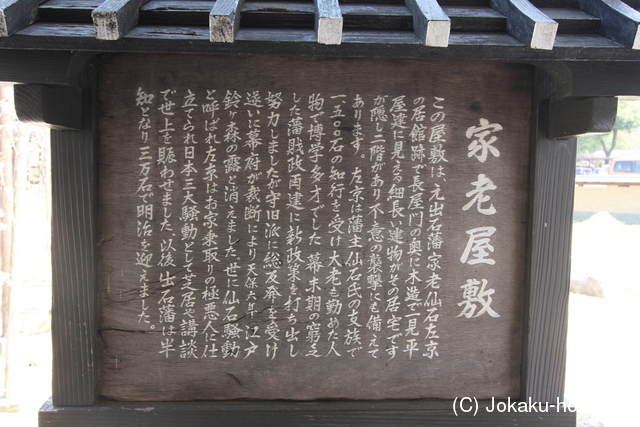 家老屋敷
この屋敷は、元出石藩家老仙石左京
の居館跡で長屋門の奥に木造で一見平
屋建に見える細長い建物がその居宅です
が隠し二階があり不意の襲撃にも備えて
あります。左京は藩主仙石氏の支族で
一五〇〇石の知行を受け大老も勤めた人
物で博学多才でした 幕末期の窮乏
した藩財政再建に新政策を打ち出し
努力しましたが守旧派に総反発を受け
遂いに幕府が裁断により天保六年 江戸
鈴ヶ森の露と消えました世に仙石騒動
と呼ばれ左京はお家乗取りの極悪人に仕
立てられ日本三大騒動として芝居や講談
で世上を賑わせました。以後 出石藩は半
知となり三万石で明治を迎えました。
(C) Jokaku-ho